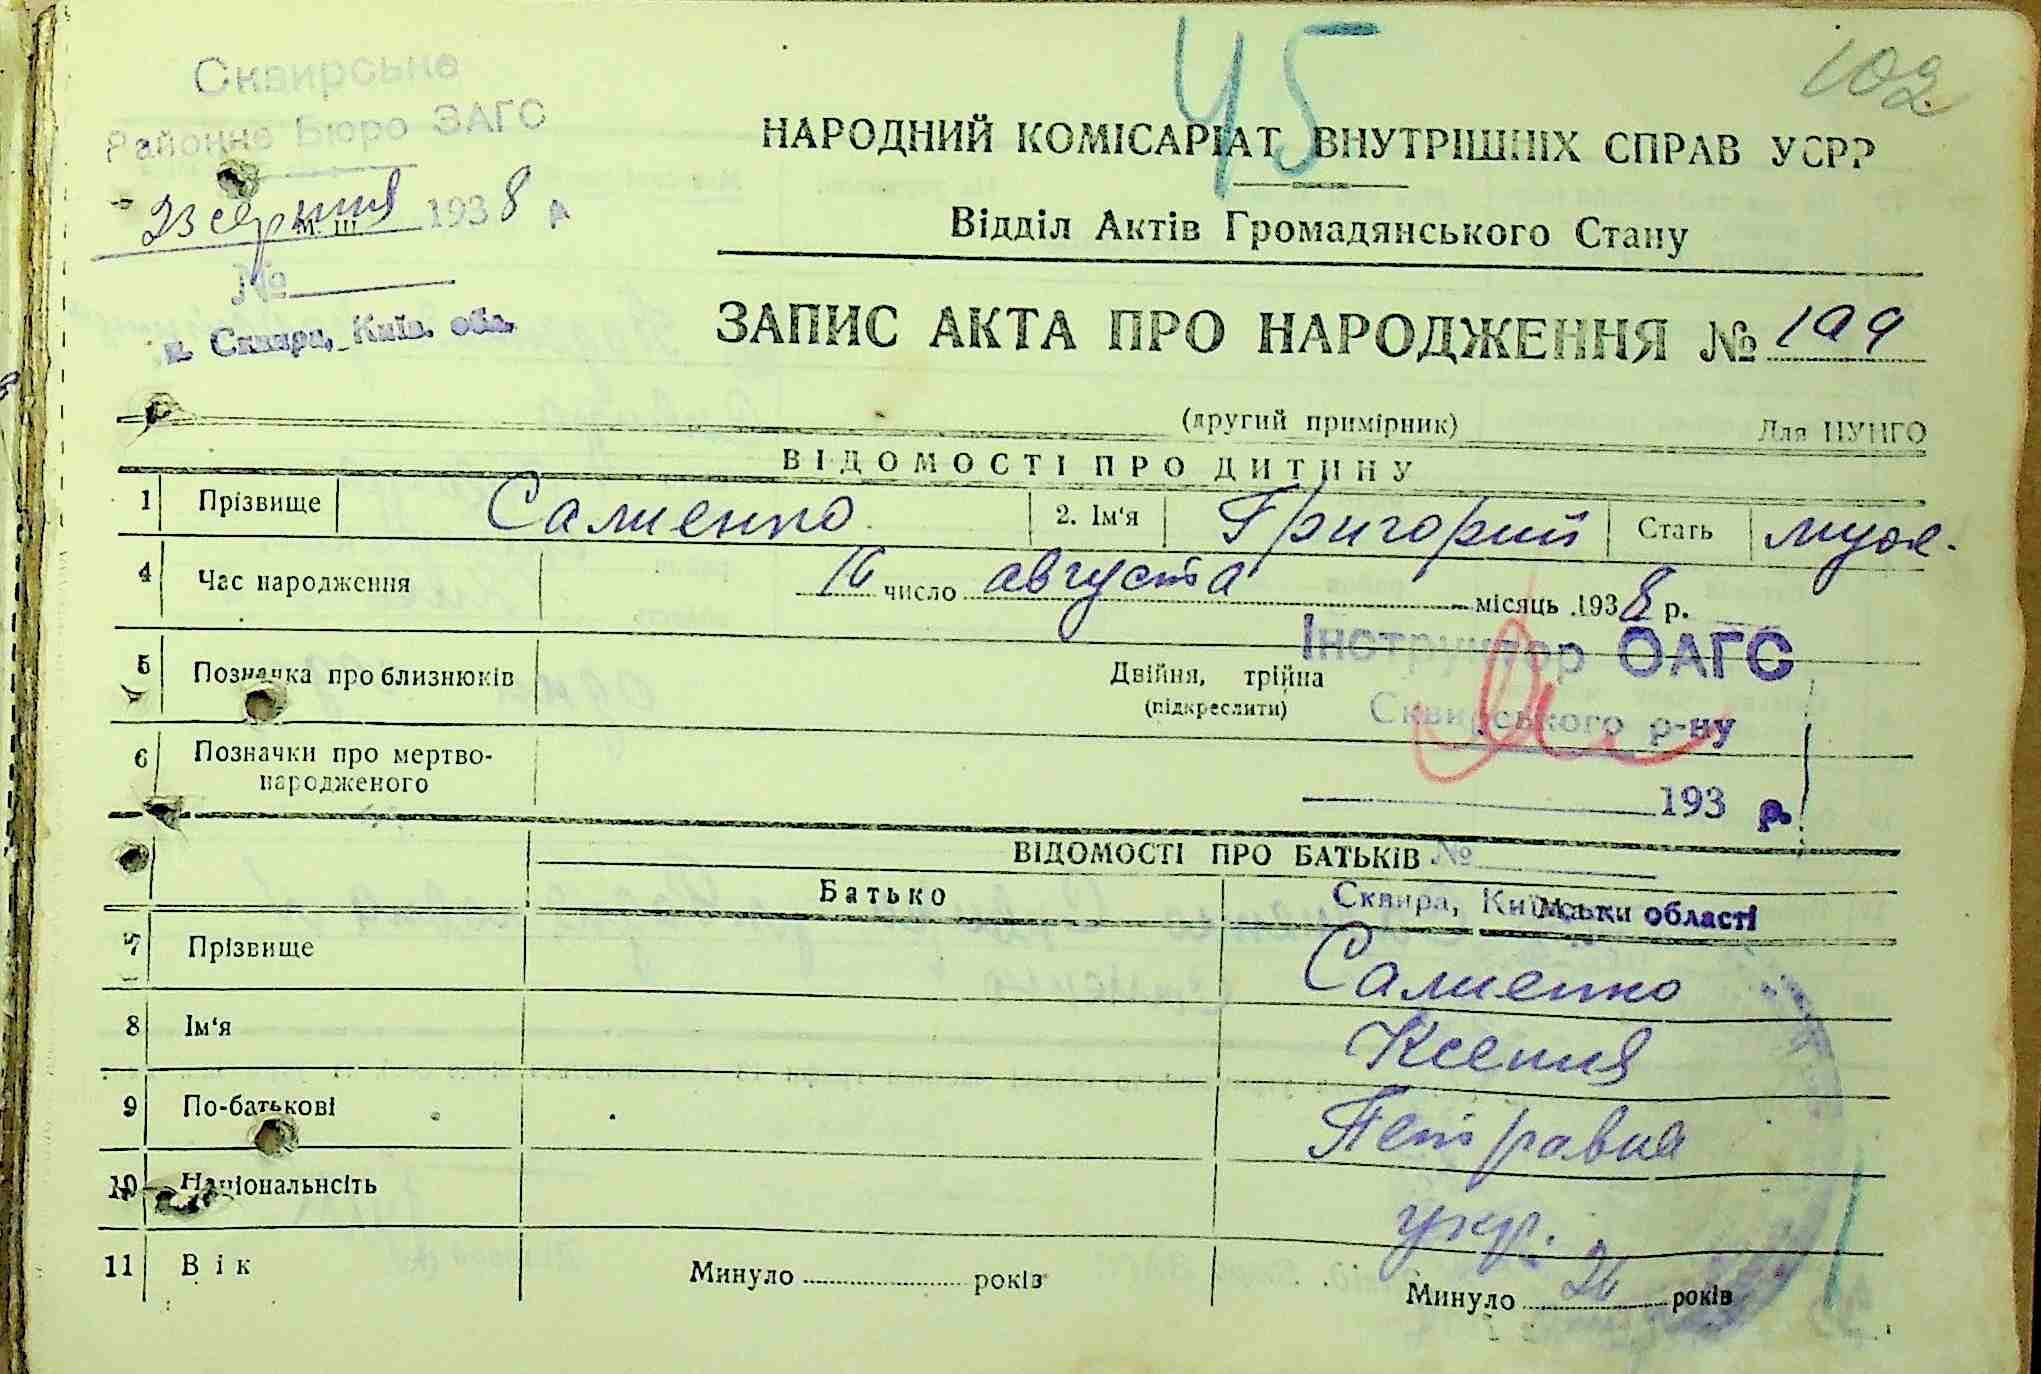 45
102
Сквирське
Районне Бюро ЗАГС
23 серпня 1938 р
№
м. Сквира, Київ. обл.
НАРОДНИЙ КОМІСАРІАТ ВНУТРІШНІХ СПРАВ УСРР
Відділ Актів Громадянського Стану
ЗАПИС АКТА ПРО НАРОДЖЕННЯ № 199
(другий примірник) Для ЦУНГО
ВІДОМОСТІ ПРО ДИТИНУ
1 Прізвище Салиенко 2. Ім'я Григорий Стать муж.
4 Час народження 16 число августа місяць 1938 р.
Інструктор ОАГС
5 Позначка про близнюків Двійня, трійна
(підкреслити)
Сквирського р-ну
6 Позначки про мертво-
народженого
193 р.
ВІДОМОСТІ ПРО БАТЬКІВ №
Батько Мати
Сквира, Київської області
7 Прізвище Салиенко
8 Ім'я Ксения
9 По-батькові Петравна
10 Національнсіть укр.
11 Вік Минуло років Минуло років